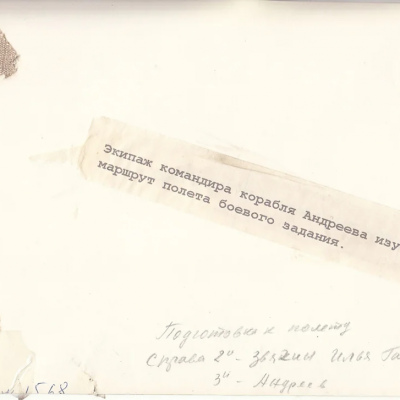 Экипаж командира корабля Андреева изу
маршрут полета боевого задания.
Подготовка к полету
Справа 2й - Звягин Илья Га
3й - Андреев
1568